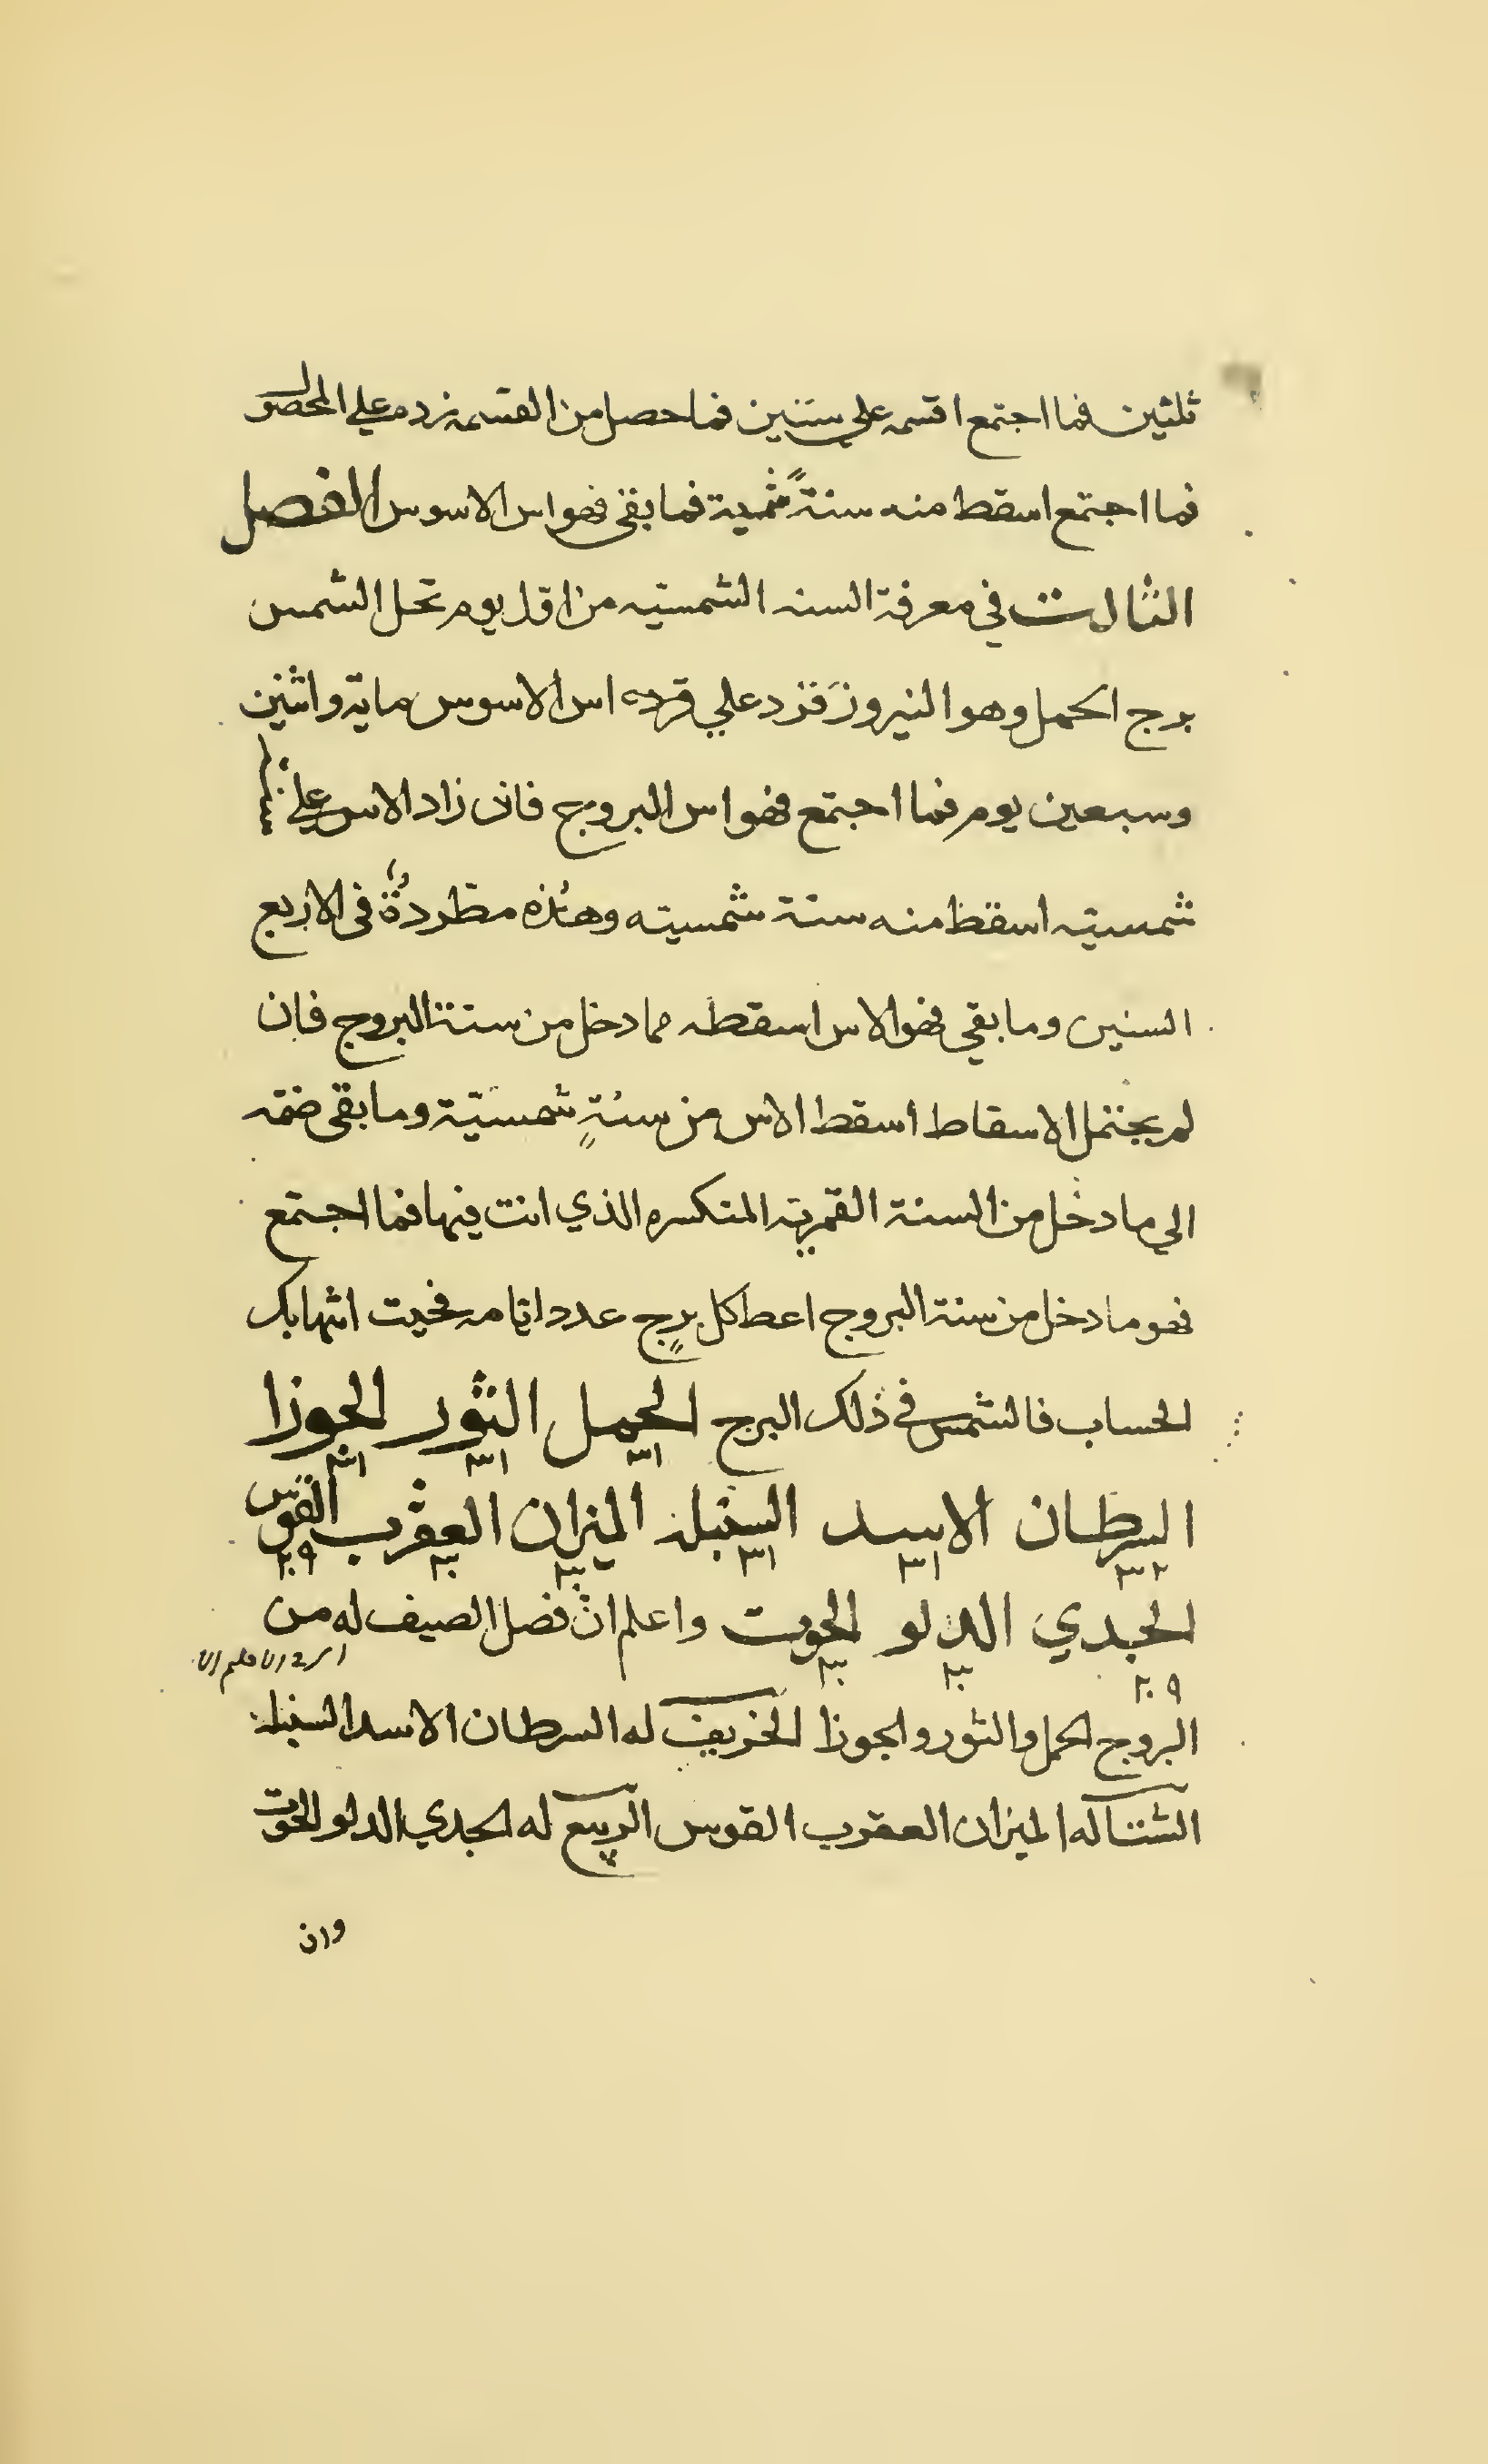 ثلثين فما اجتمع اقسمه علي ستنين فما حصل من القسمه زده علي المحصول
فما اجتمع اسقط منه سنةً شمسية فما بقي فهو اس الاسوس الفصل
الثالث في معرفة السنه الشمسيّه من اوّل يوم تحل الشمس
برج الحمل وهو النيروز فزد علي قرده اس الاسوس ماية واثنين
وسبعين يوم فما اجتمع فهو اس البروج فان زاد الاس علي
شمسيّه اسقط منه سنة شمسيّه وهذه مطّردةٌ في الاربع
السنين وما بقي فهو الاس اسقطه مما دخل من سنة البروج فان
لم يحتمل الاسقاط اسقط الاس من سنةٍ شمسيّة وما بقي ضمّه
الي ما دخل من السنة القمريّه المنكسره الذي انت فيها فما اجتمع
فهو ما دخل من سنة البروج اعط كل برجٍ عدد ايّامه فحيت انتها بك
الحساب فالشمس في ذلك البرج الحمل الثور الجوزا
٣١ ٣١ ٣١
السرطان الاسد السنبله الميزان العقرب القوس
٣٢ ٣١ ٣١ ٣٠ ٣٠ ٢٩
الجدي الدلو الحوت واعلم انّ فصل الصيف له من
٢٩ ٣٠ ٣٠
البروج الحمل والثور والجوزا الخريف له السرطان الاسد السنبله
الشتا له الميزان العقرب القوس الربيع له الجدي الدلو الحوت
وان